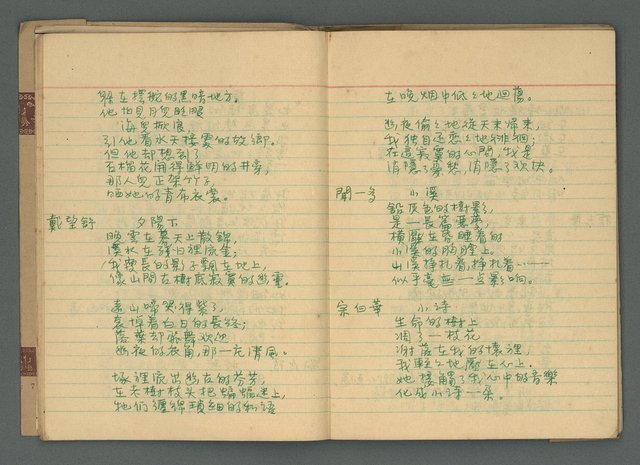 躲在搖舵的黑暗地方。
他怕見月兒眨眼
海兒掀浪
引他看水天接處的故鄉。
但他却想到了
石榴花開得鮮明的井旁，
那人兒正架竹子，
晒她的青布衣裳。
戴望舒 夕陽下
晚雲在暮天上散錦，
溪水在殘日裡流金；
我瘦長的影子飄在地上，
像山間古樹底寂寞的幽靈。
遠山啼哭得紫了，
哀悼着白日的長終；
落葉却飛舞歡迎
幽夜的衣角，那一片清風。
塚裡流出幽古的芬芳，
在老樹枝头把蝙蝠迷上，
牠们纏綿瑣細的私語
在晚烟中低々地迴蕩。
幽夜偷々地從天末歸來，
我独自还恋々地徘徊；
在這寂寞的心間，我是
消隱了憂愁，消隱了欢快。
聞一多 小溪
鉛灰色的樹影，
是一長篇惡夢，
橫壓在昏睡着的
小溪的胸膛上。
山溪掙扎着，掙扎着……
似乎毫無一点影响。
宗白華 小诗
生命的樹上
凋了一枝花
謝落在我的懷裡，
我輕々地壓在心上。
她接觸了我心中的音樂
化成小詩一朵。